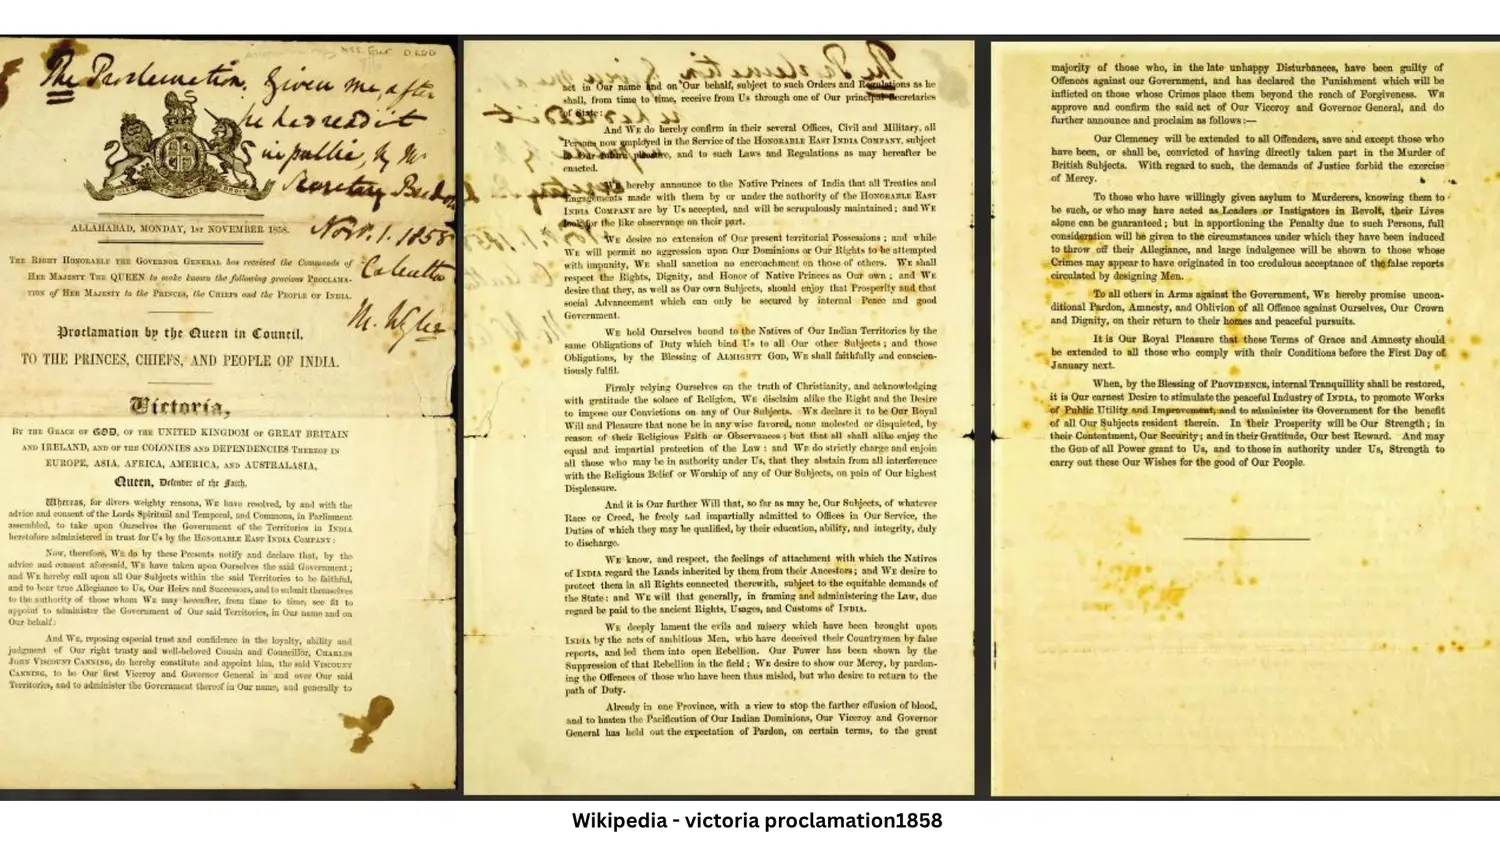 The Proclamation, Given me, after
he has read it
in public, by Mr
Secretary Beadon
Novr. 1. 1858
Calcutta
ALLAHABAD, MONDAY, 1ST NOVEMBER 1858.
THE RIGHT HONORABLE THE GOVERNOR GENERAL has received the Commands of
HER MAJESTY THE QUEEN to make known the following gracious PROCLAMA-
TION of HER MAJESTY to the PRINCES, the CHIEFS and the PEOPLE OF INDIA.
Proclamation by the Queen in Council,
TO THE PRINCES, CHIEFS, AND PEOPLE OF INDIA.
Victoria,
BY THE GRACE OF GOD, OF THE UNITED KINGDOM OF GREAT BRITAIN
AND IRELAND, AND OF THE COLONIES AND DEPENDENCIES THEREOF IN
EUROPE, ASIA, AFRICA, AMERICA, AND AUSTRALASIA,
Queen, Defender of the Faith.
Whereas, for divers weighty reasons, We have resolved, by and with the
advice and consent of the Lords Spiritual and Temporal, and Commons, in Parliament
assembled, to take upon Ourselves the Government of the Territories in INDIA
heretofore administered in trust for Us by the HONORABLE EAST INDIA COMPANY:
Now, therefore, WE do by these Presents notify and declare that, by the
advice and consent aforesaid, WE have taken upon Ourselves the said Government;
and WE hereby call upon all Our Subjects within the said Territories to be faithful,
and to bear true Allegiance to Us, Our Heirs and Successors, and to submit themselves
to the authority of those whom WE may hereafter, from time to time, see fit to
appoint to administer the Government of Our said Territories, in Our name and on
Our behalf:
And WE, reposing especial trust and confidence in the loyalty, ability and
judgment of Our right trusty and well-beloved Cousin and Councillor, CHARLES
JOHN VISCOUNT CANNING, do hereby constitute and appoint him, the said VISCOUNT
CANNING, to be Our first Viceroy and Governor General in and over Our said
Territories, and to administer the Government thereof in Our name, and generally to
act in Our name and on Our behalf, subject to such Orders and Regulations as he
shall, from time to time, receive from Us through one of Our principal Secretaries
of State:
And WE do hereby confirm in their several Offices, Civil and Military, all
Persons now employed in the Service of the HONORABLE EAST INDIA COMPANY, subject
to Our future pleasure, and to such Laws and Regulations as may hereafter be
enacted.
We hereby announce to the Native Princes of India that all Treaties and
Engagements made with them by or under the authority of the HONORABLE EAST
INDIA COMPANY are by Us accepted, and will be scrupulously maintained; and WE
look for the like observance on their part.
WE desire no extension of Our present territorial Possessions; and while
WE will permit no aggression upon Our Dominions or Our Rights to be attempted
with impunity, WE shall sanction no encroachment on those of others. WE shall
respect the Rights, Dignity, and Honor of Native Princes as Our own; and WE
desire that they, as well as Our own Subjects, should enjoy that Prosperity and that
social Advancement which can only be secured by internal Peace and good
Government.
WE hold Ourselves bound to the Natives of Our Indian Territories by the
same Obligations of Duty which bind Us to all Our other Subjects; and those
Obligations, by the Blessing of ALMIGHTY GOD, WE shall faithfully and conscien-
tiously fulfil.
Firmly relying Ourselves on the truth of Christianity, and acknowledging
with gratitude the solace of Religion, WE disclaim alike the Right and the Desire
to impose our Convictions on any of Our Subjects. WE declare it to be Our Royal
Will and Pleasure that none be in any wise favored, none molested or disquieted, by
reason of their Religious Faith or Observances; but that all shall alike enjoy the
equal and impartial protection of the Law: and WE do strictly charge and enjoin
all those who may be in authority under Us, that they abstain from all interference
with the Religious Belief or Worship of any of Our Subjects, on pain of Our highest
Displeasure.
And it is Our further Will that, so far as may be, Our Subjects, of whatever
Race or Creed, be freely and impartially admitted to Offices in Our Service, the
Duties of which they may be qualified, by their education, ability, and integrity, duly
to discharge.
WE know, and respect, the feelings of attachment with which the Natives
of INDIA regard the Lands inherited by them from their Ancestors; and WE desire to
protect them in all Rights connected therewith, subject to the equitable demands of
the State: and WE will that generally, in framing and administering the Law, due
regard be paid to the ancient Rights, Usages, and Customs of INDIA.
WE deeply lament the evils and misery which have been brought upon
INDIA by the acts of ambitious Men, who have deceived their Countrymen by false
reports, and led them into open Rebellion. Our Power has been shown by the
Suppression of that Rebellion in the field; WE desire to show our Mercy, by pardon-
ing the Offences of those who have been thus misled, but who desire to return to the
path of Duty.
Already in one Province, with a view to stop the further effusion of blood,
and to hasten the Pacification of Our Indian Dominions, Our Viceroy and Governor
General has held out the expectation of Pardon, on certain terms, to the great
majority of those who, in the late unhappy Disturbances, have been guilty of
Offences against our Government, and has declared the Punishment which will be
inflicted on those whose Crimes place them beyond the reach of Forgiveness. WE
approve and confirm the said act of Our Viceroy and Governor General, and do
further announce and proclaim as follows:—
Our Clemency will be extended to all Offenders, save and except those who
have been, or shall be, convicted of having directly taken part in the Murder of
British Subjects. With regard to such, the demands of Justice forbid the exercise
of Mercy.
To those who have willingly given asylum to Murderers, knowing them to
be such, or who may have acted as Leaders or Instigators in Revolt, their Lives
alone can be guaranteed; but in apportioning the Penalty due to such Persons, full
consideration will be given to the circumstances under which they have been induced
to throw off their Allegiance, and large indulgence will be shown to those whose
Crimes may appear to have originated in too credulous acceptance of the false reports
circulated by designing Men.
To all others in Arms against the Government, WE hereby promise uncon-
ditional Pardon, Amnesty, and Oblivion of all Offence against Ourselves, Our Crown
and Dignity, on their return to their homes and peaceful pursuits.
It is Our Royal Pleasure that these Terms of Grace and Amnesty should
be extended to all those who comply with their Conditions before the First Day of
January next.
When, by the Blessing of PROVIDENCE, internal Tranquillity shall be restored,
it is Our earnest Desire to stimulate the peaceful Industry of INDIA, to promote Works
of Public Utility and Improvement, and to administer its Government for the benefit
of all Our Subjects resident therein. In their Prosperity will be Our Strength; in
their Contentment, Our Security; and in their Gratitude, Our best Reward. And may
the GOD of all Power grant to Us, and to those in authority under Us, Strength to
carry out these Our Wishes for the good of Our People.
Wikipedia - victoria proclamation1858